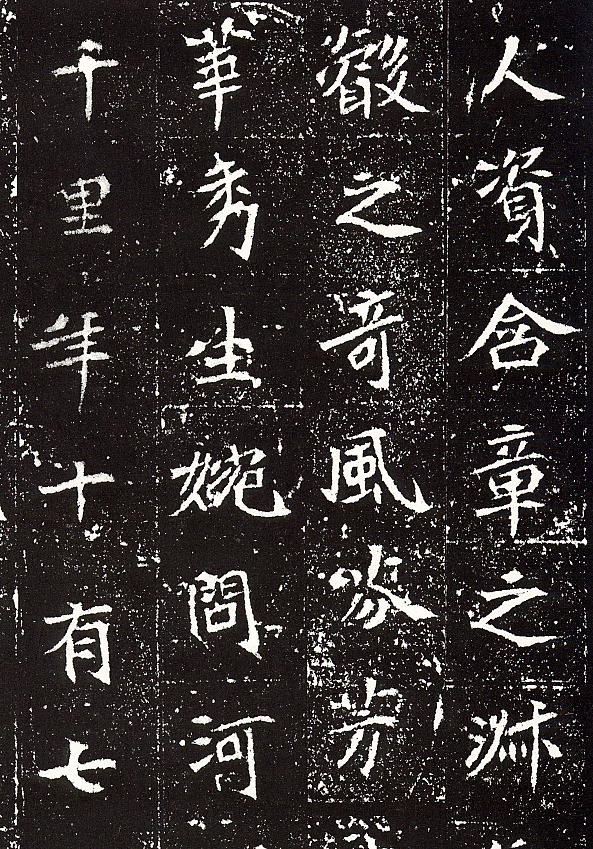 人資含章之淑
叡之奇風芬芳
華秀生婉問河
千里年十有七